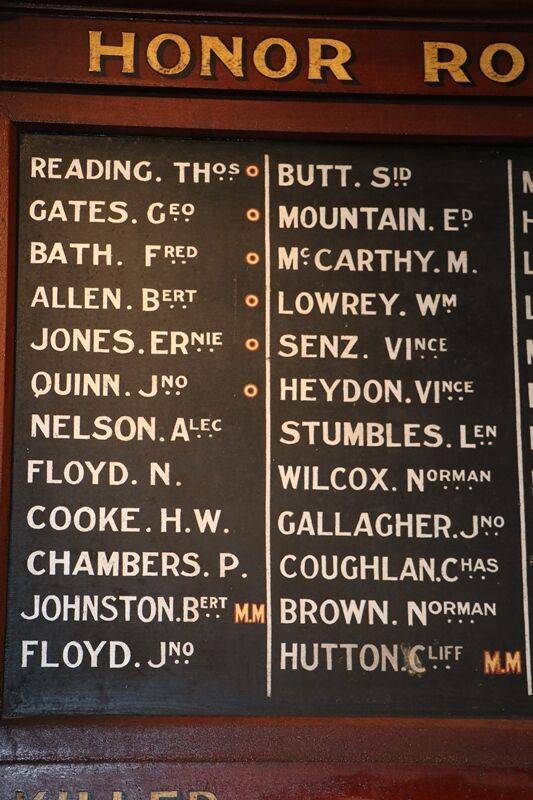 HONOR RO
READING. THOS
GATES. GEO
BATH. FRED
ALLEN. BERT
JONES. ERNIE
QUINN. JNO
NELSON. ALEC
FLOYD. N.
COOKE. H.W.
CHAMBERS. P.
JOHNSTON. BERT M.M
FLOYD. JNO
BUTT. SID
MOUNTAIN. ED
McCARTHY. M.
LOWREY. WM
SENZ. VINCE
HEYDON. VINCE
STUMBLES. LEN
WILCOX. NORMAN
GALLAGHER. JNO
COUGHLAN. CHAS
BROWN. NORMAN
HUTTON. CLIFF M.M
KILLED